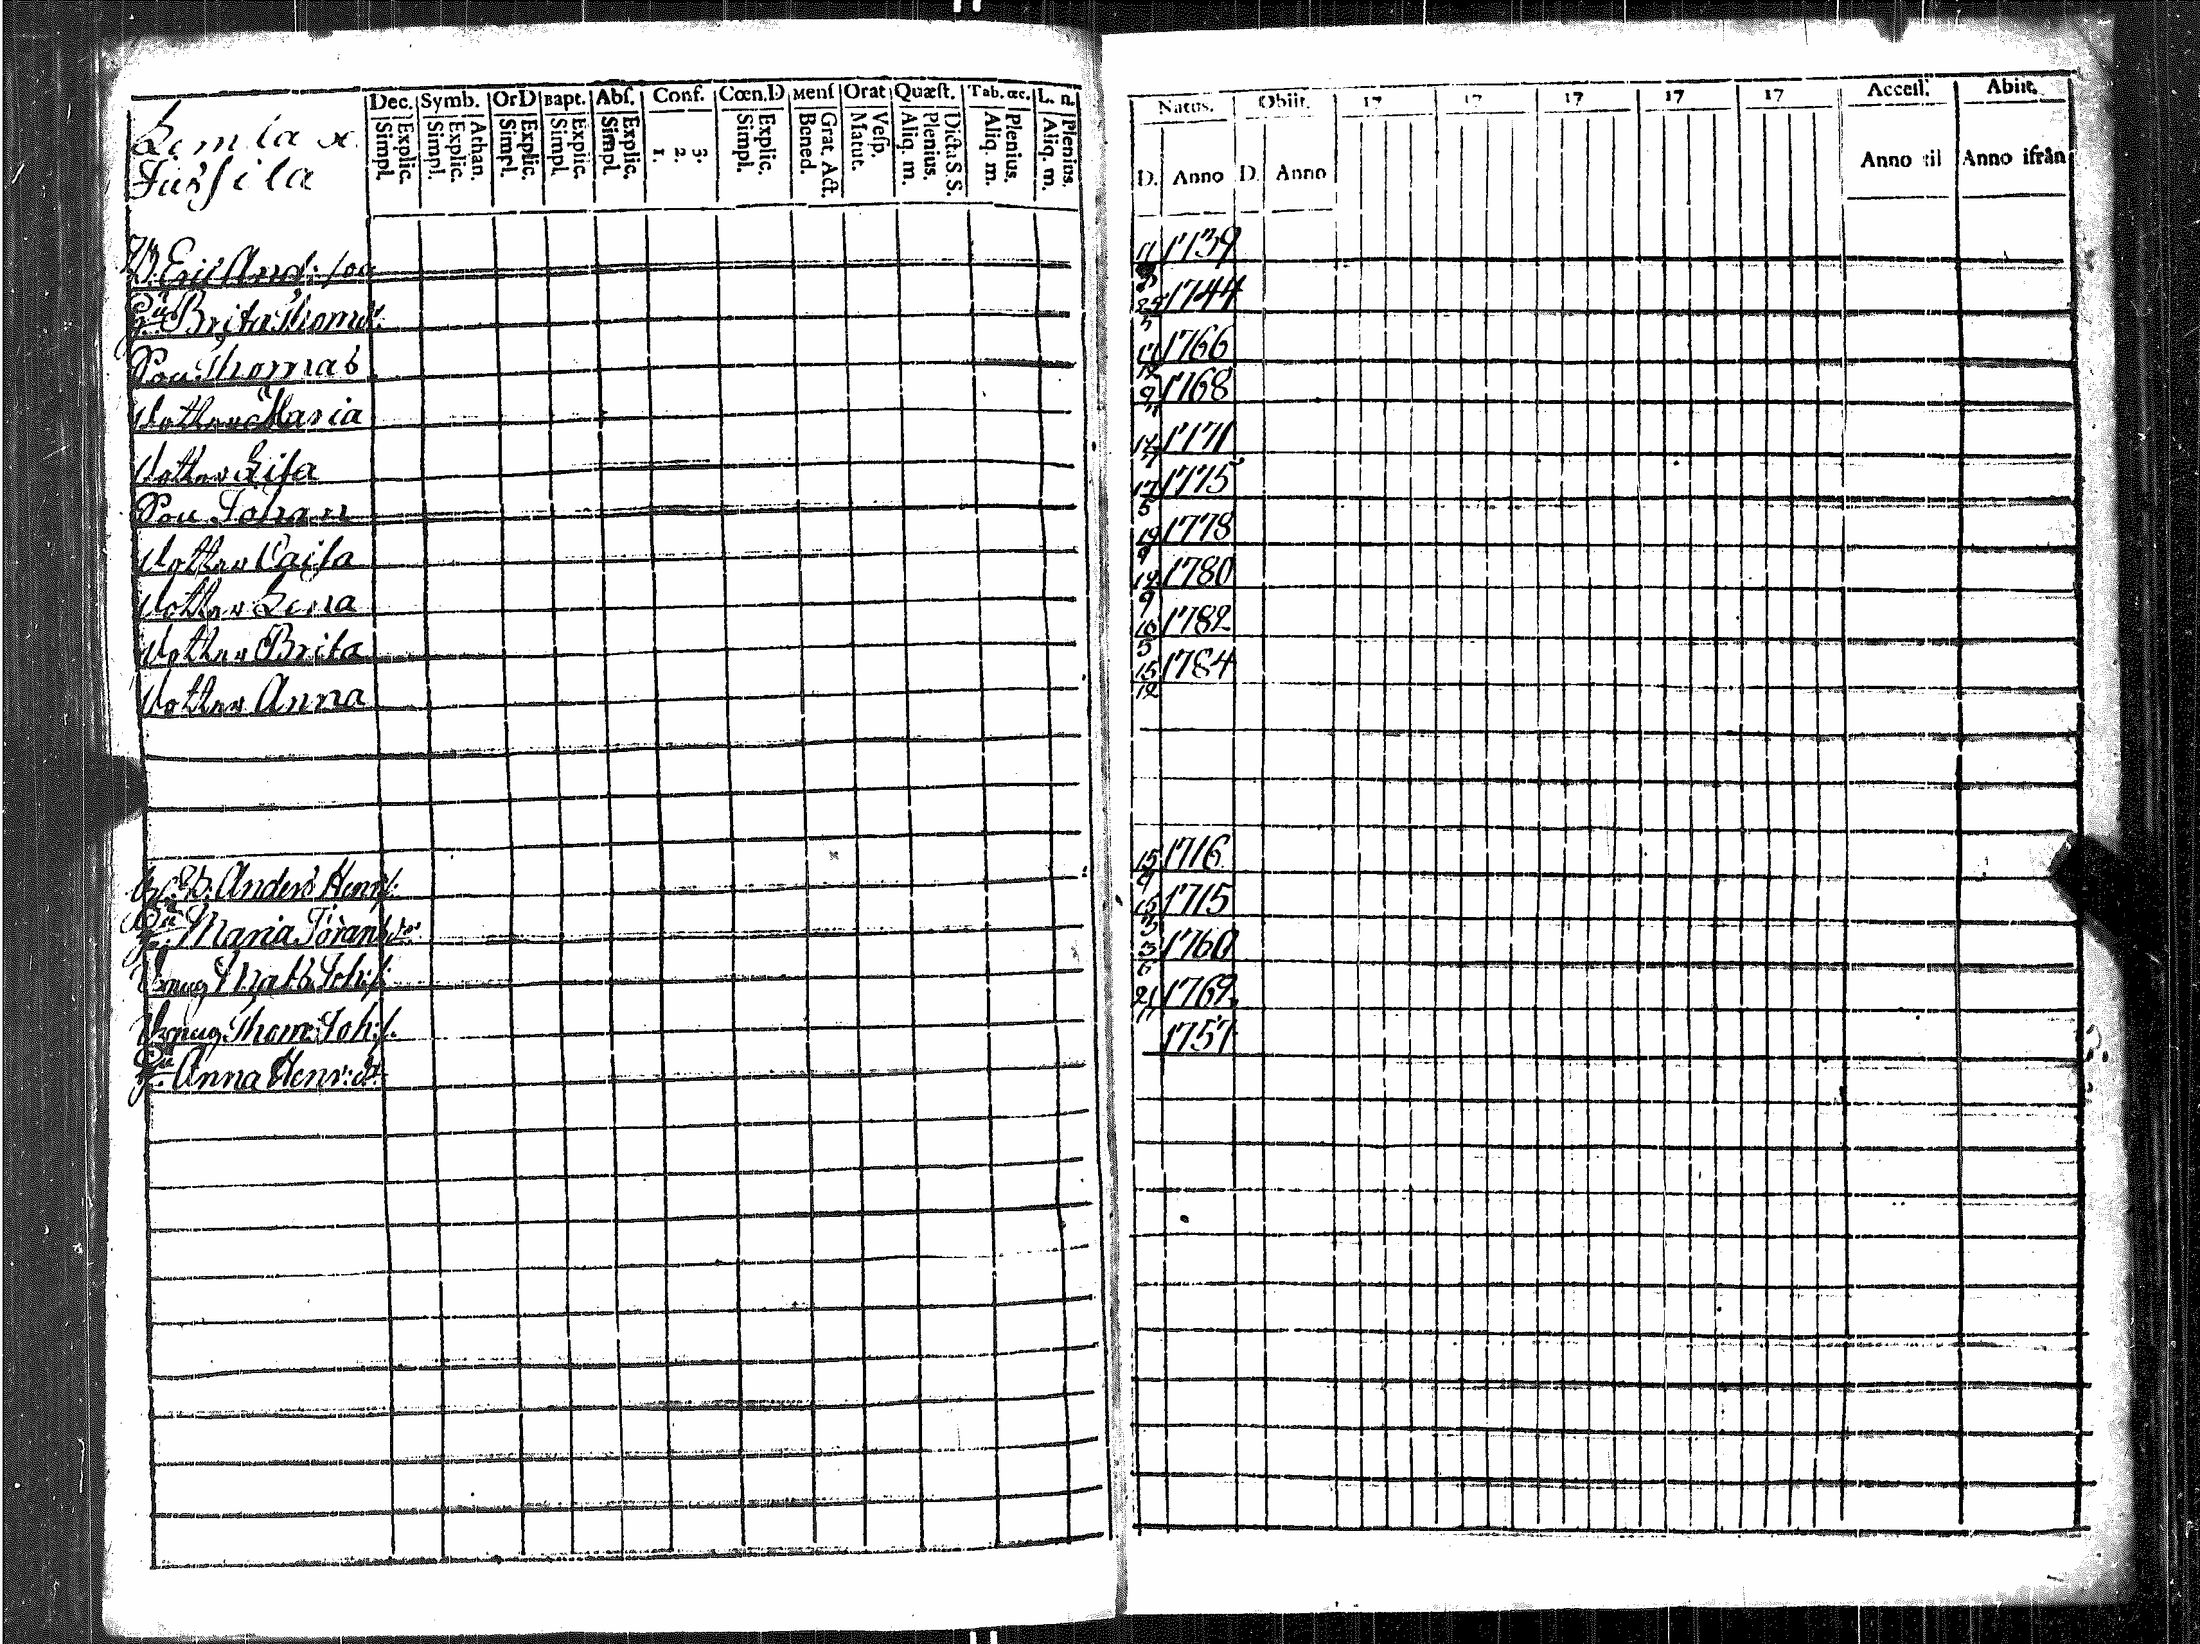 Lemla &.
Jussila
Dec. Symb. Or D Bapt. Abs. Conf. Cœn. D Mens Orat Quæst. Tab. œc. L. n.
Simpl. Explic. Simpl. Explic. Athan. Simpl. Explic. Simpl. Explic. Simpl. Explic. 1. 2. 3. Simpl. Explic. Bened. Grat. Act. Matut. Vesp. Aliq. m. Plenius. Dicta S.S. Aliq. m. Plenius. Aliq. m. Plenius.
Natus. Obiit. 17 17 17 17 17 Access. Abiit.
D. Anno D. Anno Anno til Anno ifrån
B. Eric And:son 11 1739
Brita Thomd. 1744
Son Thomas 1766
Dotter Maria 1768
Dotter Lisa 1771
Son Johan 17/5 1775
Dotter Caisa 19/9 1778
Dotter Lena 1780
Dotter Brita 10/5 1782
Dotter Anna 15/12 1784
B. Anders Henr. 15 1716
Maria Jörans 15/3 1715
Matts Joh: 3/6 1760
Thom. Joh: 21/11 1762
Anna Henr:dr 1757